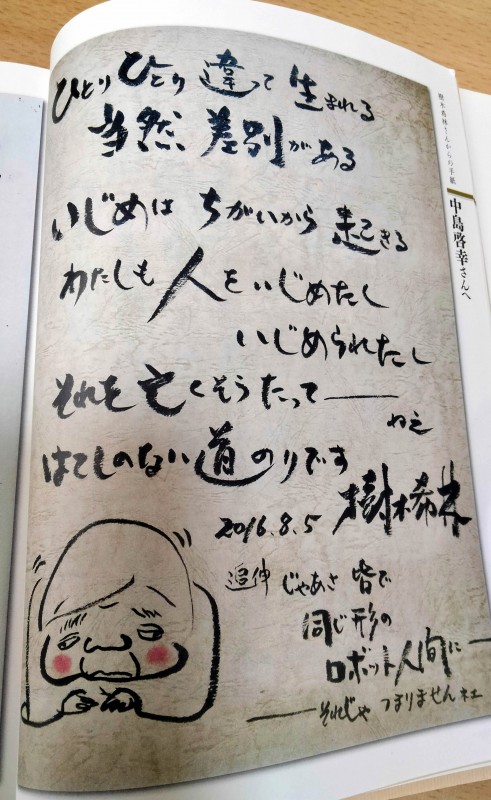 樹木希林さんからの手紙
中島啓幸さんへ
ひとりひとり違って生まれる
当然差別がある
いじめは ちがいから 起きる
わたしも人をいじめたし
いじめられたし
それを亡くそうたって――
ねえ
はてしのない道のりです
2016.8.5 樹木希林
追伸 じゃあさ 皆で
同じ形の
ロボット人間に―
――それじゃ つまりませんネェ